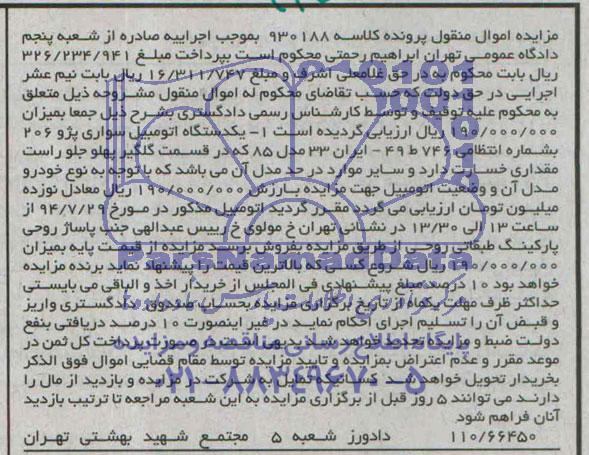 مزایده اموال منقول پرونده کلاسه ۹۳۰۱۸۸ بموجب اجراییه صادره از شعبه پنجم
دادگاه عمومی تهران ابراهیم رحمتی محکوم است بپرداخت مبلغ ۳۲۶/۲۳۴/۹۴۱
ریال بابت محکوم به در حق غلامعلی اشرف و مبلغ ۱۶/۳۱۱/۷۴۷ ریال بابت نیم عشر
اجرایی در حق دولت که حسب تقاضای محکوم له اموال منقول مشروحه ذیل متعلق
به محکوم علیه توقیف و توسط کارشناس رسمی دادگستری بشرح ذیل جمعا بمیزان
۱۹۰/۰۰۰/۰۰۰ ریال ارزیابی گردیده است ۱- یکدستگاه اتومبیل سواری پژو ۲۰۶
بشماره انتظامی ۷۴۶ ط ۴۹ - ایران ۳۳ مدل ۸۵ که در قسمت گلگیر پهلو جلو راست
مقداری خسارت دارد و سایر موارد در حد مدل آن می باشد که با توجه به نوع خودرو
مدل آن و وضعیت اتومبیل جهت مزایده بارزش ۱۹۰/۰۰۰/۰۰۰ ریال معادل نوزده
میلیون تومان ارزیابی می گردد مقرر گردید اتومبیل مذکور در مورخ ۹۴/۷/۲۹ از
ساعت ۱۳ الی ۱۳/۳۰ در نشانی تهران خ مولوی خ رییس عبدالهی جنب پاساژ روحی
پارکینگ طبقاتی روحی از طریق مزایده بفروش برسد مزایده از قیمت پایه بمیزان
۱۹۰/۰۰۰/۰۰۰ ریال شروع کسی که بالاترین قیمت را پیشنهاد نماید برنده مزایده
خواهد بود ۱۰ درصد مبلغ پیشنهادی فی المجلس از خریدار اخذ و الباقی می بایستی
حداکثر ظرف مهلت یکماه از تاریخ برگزاری مزایده بحساب صندوق دادگستری واریز
و قبض آن را تسلیم اجرای احکام نماید در غیر اینصورت ۱۰ درصد دریافتی بنفع
دولت ضبط و مزایده تجدید خواهد شد بدیهی است در صورت پرداخت کل ثمن در
موعد مقرر و عدم اعتراض بمزایده و تایید مزایده توسط مقام قضایی اموال فوق الذکر
بخریدار تحویل خواهد شد کسانیکه تمایل به شرکت در مزایده و بازدید از مال را
دارند می توانند ۵ روز قبل از برگزاری مزایده به این شعبه مراجعه تا ترتیب بازدید
آنان فراهم شود
۱۱۰/۶۶۴۵۰ دادورز شعبه ۵ مجتمع شهید بهشتی تهران
ParsNamadData
۰۲۱-۸۸۳۴۹۶۷۰-۵